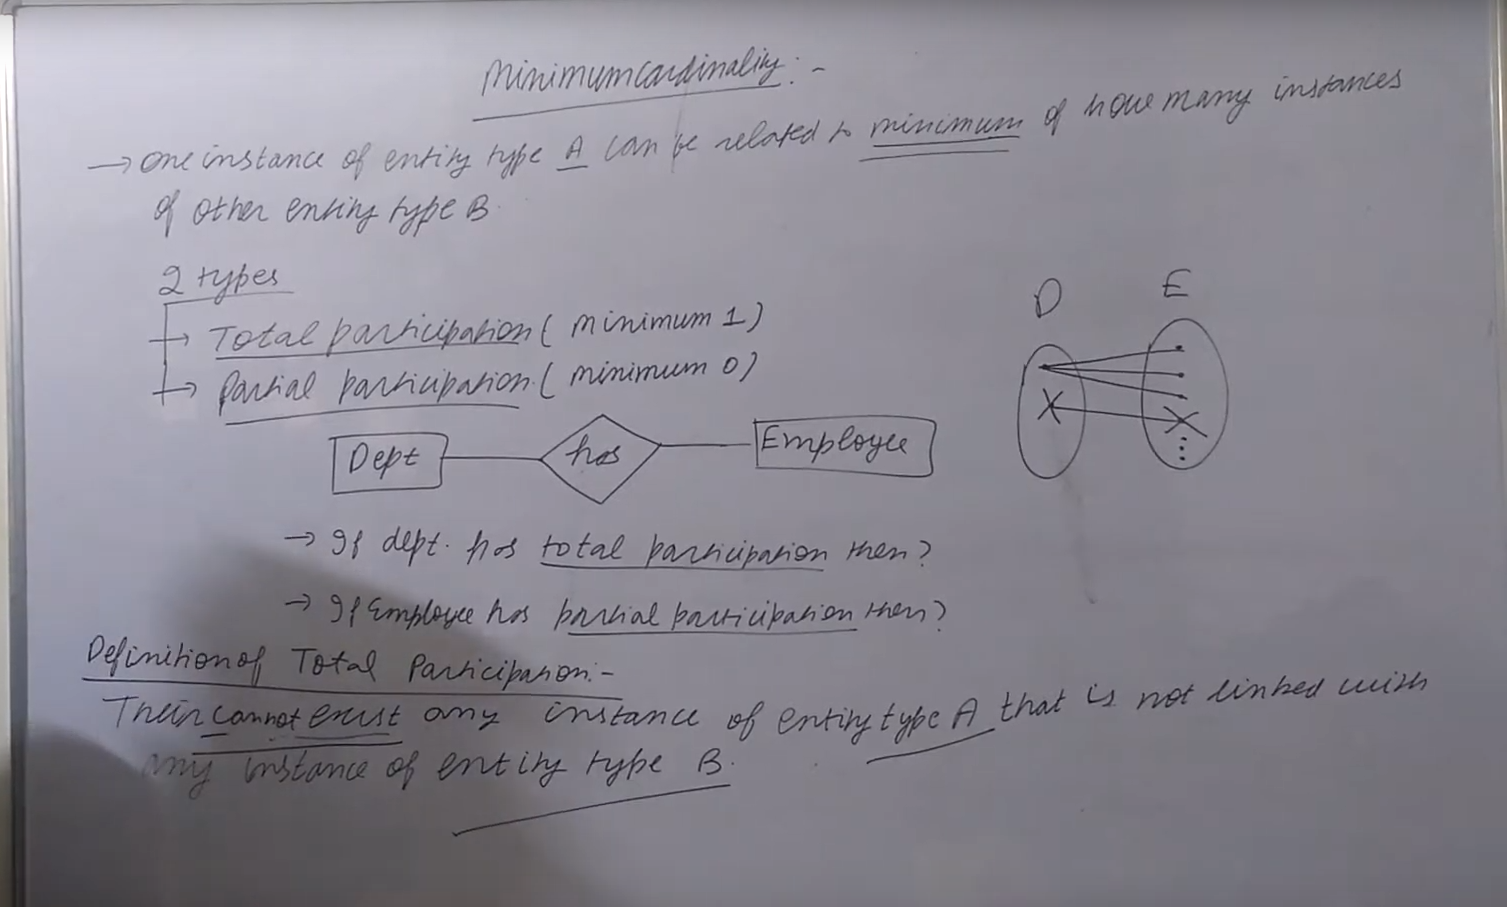 Minimum Cardinality:-
→ one instance of entity type A can be related to minimum of how many instances
of other entity type B
2 types
→ Total participation ( minimum 1 )
→ Partial participation ( minimum 0 )
D E
Dept has Employee
→ If dept. has total participation then?
→ If Employee has partial participation then?
Definition of Total Participation:-
Their cannot exist any instance of entity type A that is not linked with
any instance of entity type B.